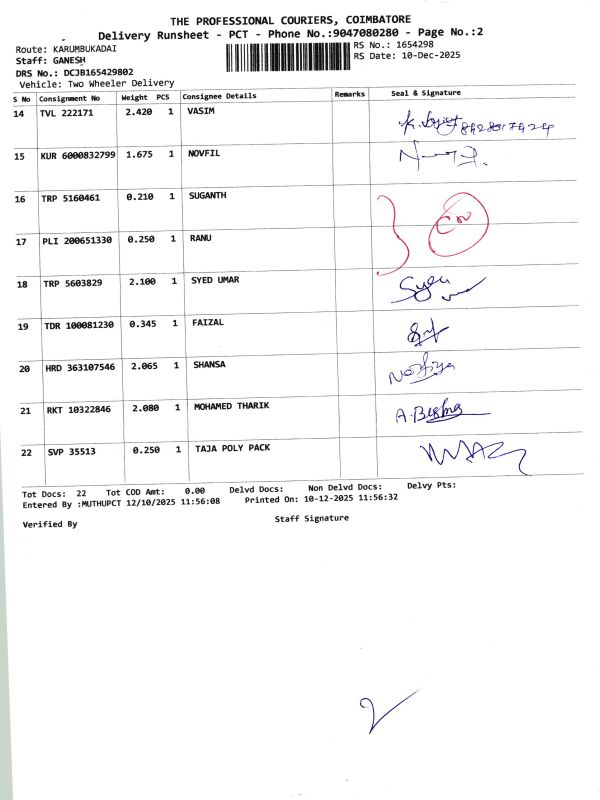 THE PROFESSIONAL COURIERS, COIMBATORE
Delivery Runsheet - PCT - Phone No.:9047080280 - Page No.:2
Route: KARUMBUKADAI
RS No.: 1654298
Staff: GANESH
RS Date: 10-Dec-2025
DRS No.: DCJB165429802
Vehicle: Two Wheeler Delivery
S No Consignment No Weight PCS Consignee Details Remarks Seal & Signature
14 TVL 222171 2.420 1 VASIM
15 KUR 6000832799 1.675 1 NOVFIL
16 TRP 5160461 0.210 1 SUGANTH
17 PLI 200651330 0.250 1 RANU
18 TRP 5603829 2.100 1 SYED UMAR
19 TDR 100081230 0.345 1 FAIZAL
20 HRD 363107546 2.065 1 SHANSA
21 RKT 10322846 2.080 1 MOHAMED THARIK A.
22 SVP 35513 0.250 1 TAJA POLY PACK
Tot Docs: 22 Tot COD Amt: 0.00 Delvd Docs: Non Delvd Docs: Delvy Pts:
Entered By :MUTHUPCT 12/10/2025 11:56:08 Printed On: 10-12-2025 11:56:32
Verified By Staff Signature